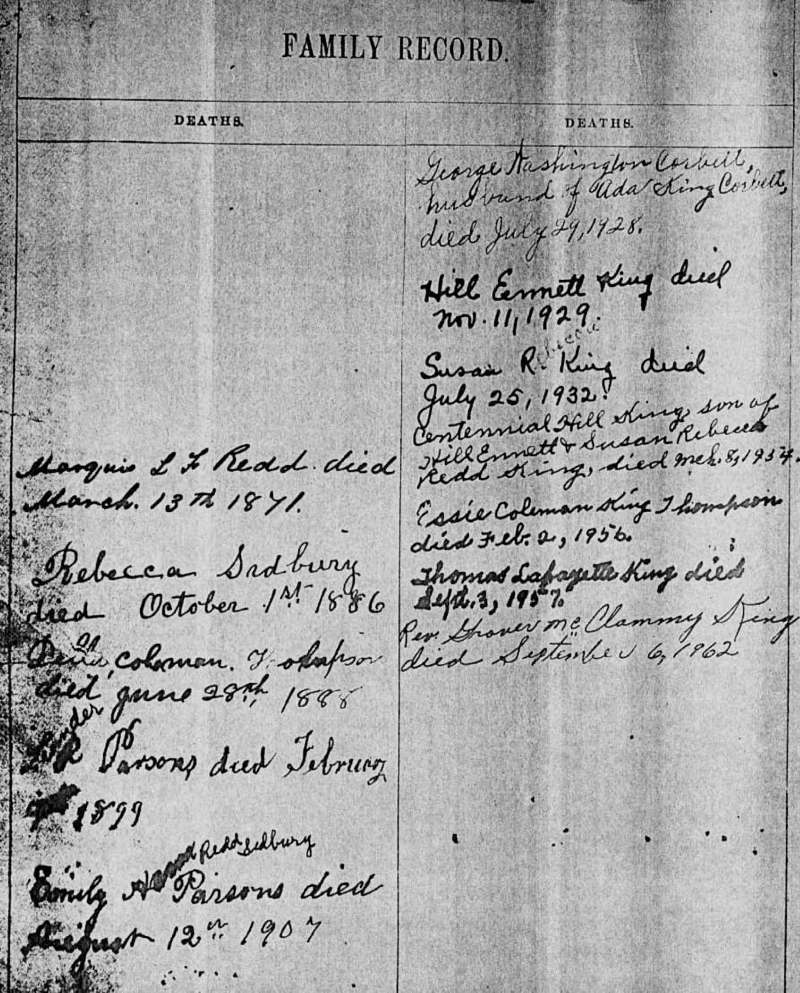 FAMILY RECORD.
DEATHS.
Marquis L F Redd died
March. 13th 1871.
Rebecca Sidbury
died October 1st 1886
Coleman. Thompson
died June 28th 1888
L R Parsons died February
1899
Redd Sidbury
Emily H Parsons died
August 12th 1907
DEATHS.
George Washington Corbett,
husband of Ada King Corbett,
died July 29, 1928.
Hill Ennett King died
Nov. 11, 1929.
Rebecca
Susan R. King died
July 25, 1932.
Centennial Hill King, son of
Hill Ennett & Susan Rebecca
Redd King, died Mch. 8, 1954.
Essie Coleman King Thompson
died Feb. 2, 1956.
Thomas Lafayette King died
Sept. 3, 1957.
Rev. Grover McClammy King
died September 6, 1962